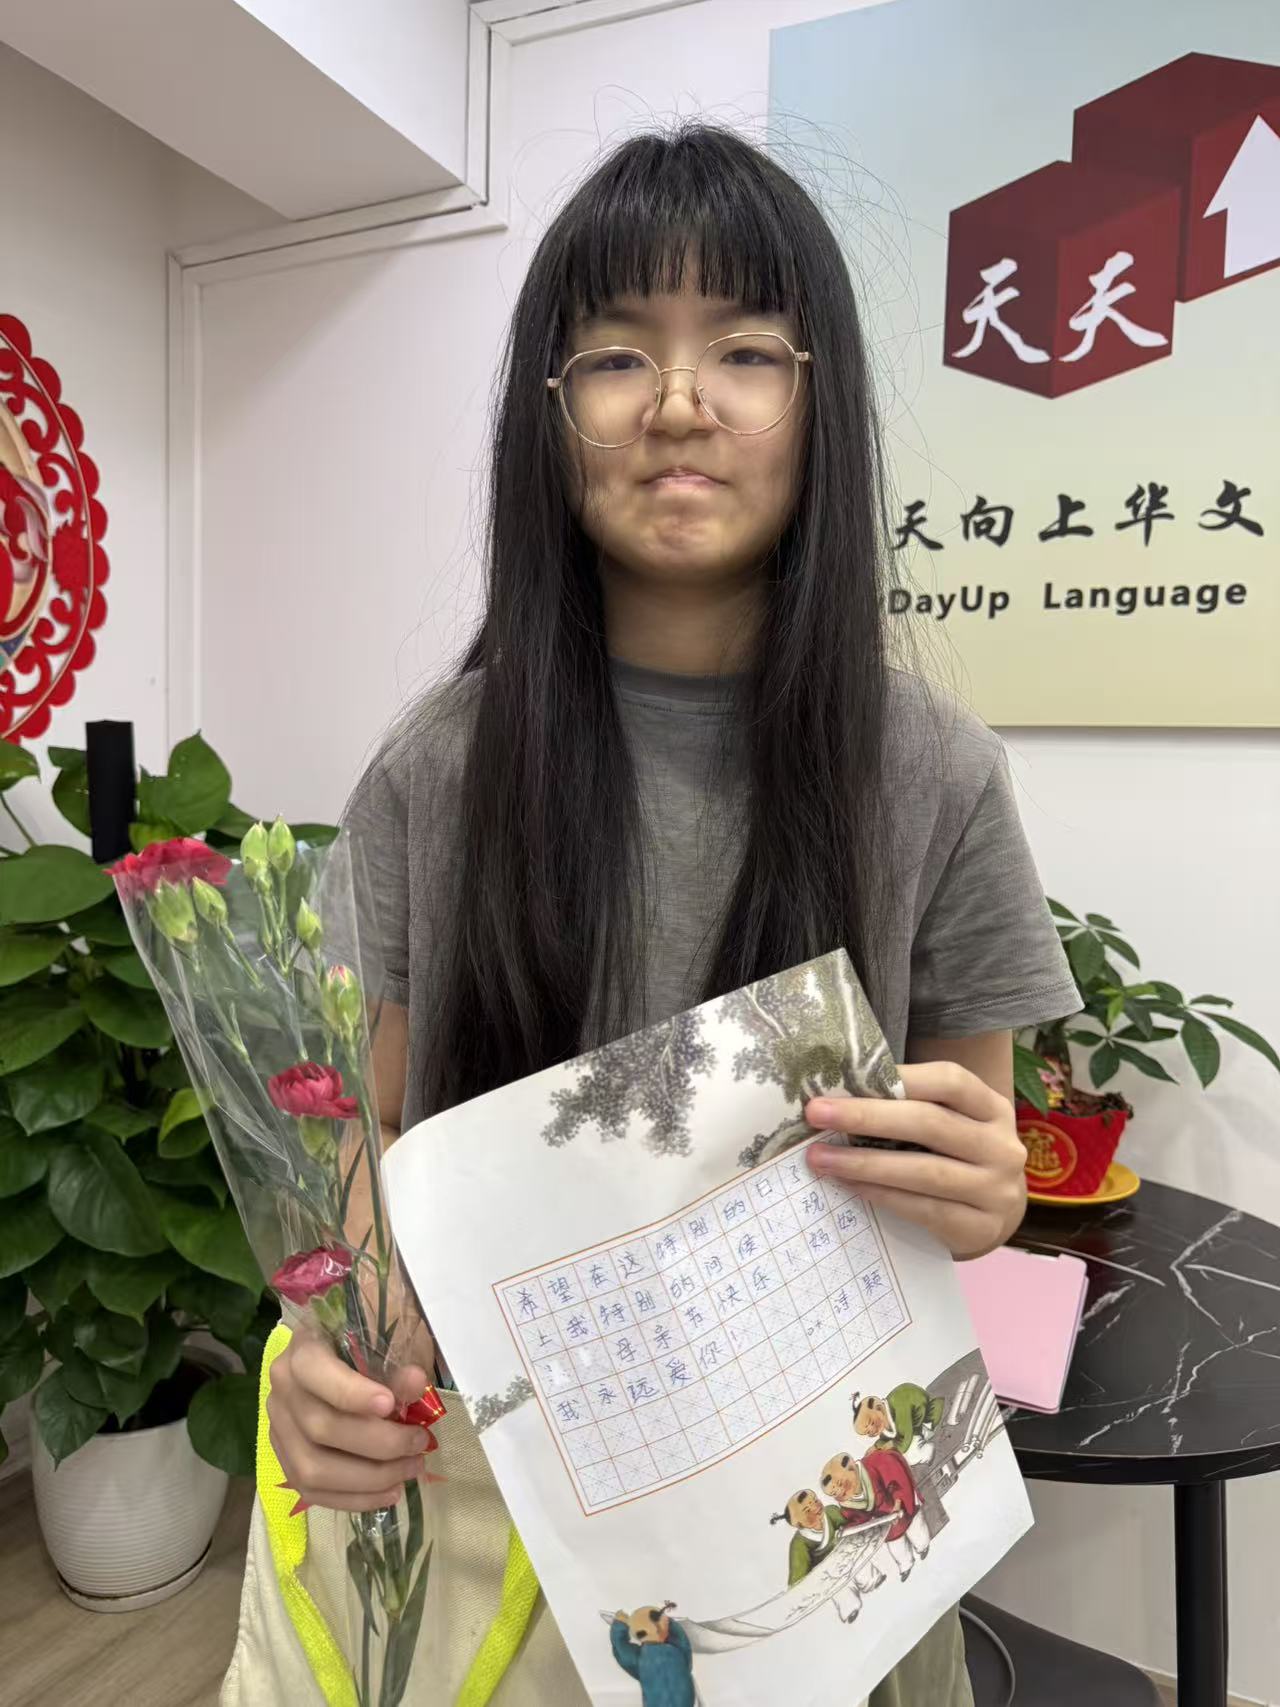 天天
天向上华文
DayUp Language
希望在这特别的日子
上我特别的问候！祝
母亲节快乐！妈妈
我永远爱你！
诗颖